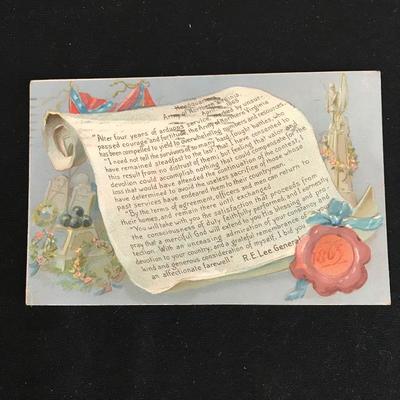 Headquarters,
Army of Northern Virginia,
April 1865
"After four years of arduous service, marked by unsur-
passed courage and fortitude, the Army of Northern Virginia
has been compelled to yield to overwhelming numbers and resources.
"I need not tell the survivors of so many hard fought battles, who
have remained steadfast to the last, that I have consented to
this result from no distrust of them; but feeling that valor and
devotion could accomplish nothing that could compensate for the
loss that would have attended the continuation of the contest, I
have determined to avoid the useless sacrifice of those whose
past services have endeared them to their countrymen.
"By the terms of agreement, officers and men can return to
their homes, and remain there until exchanged.
"You will take with you the satisfaction that proceeds from
the consciousness of duty faithfully performed; and I earnestly
pray that a merciful God will extend to you His blessing and pro-
tection. With an unceasing admiration of your constancy and
devotion to your country, and a grateful remembrance of your
kind and generous consideration of myself, I bid you
an affectionate farewell."
R.E. Lee General.
1865